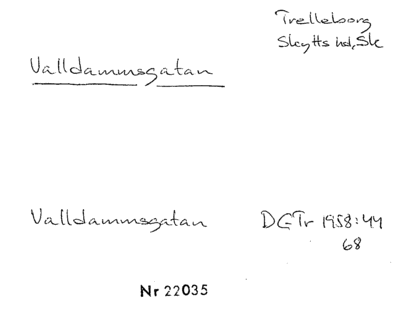 Trelleborg
Skytts hd, Sk
Valldammsgatan
Valldammsgatan DGTr 1958:44
68
Nr 22035